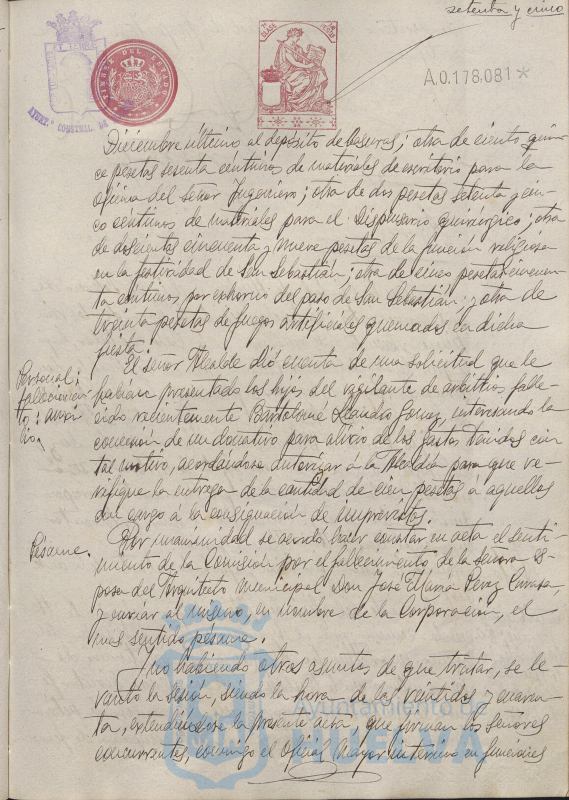 setenta y cinco
1ª CLASE
TIMBRE DEL ESTADO
AYUNTº CONSTNAL. DE
A0.178,081*
Diciembre último al depósito de basuras; otra de ciento quin
ce pesetas sesenta centimos de materiales de escritorio para la
oficina del señor Ingeniero; otra de dos pesetas setenta y cin
co centimos de materiales para el Dispensario quirúrgico; otra
de doscientas cincuenta y nueve pesetas de la función religiosa
en la festividad de San Sebastián; otra de cinco pesetas cincuen
ta centimos por exhorno del paso de San Sebastián; y otra de
treinta pesetas de fuegos artificiales quemados en dicha
fiesta.
Personal:
fallecimien
to: auxi
lio.
El señor Alcalde dió cuenta de una solicitud que le
habían presentado los hijos del vigilante de arbitrios falle
cido recientemente Bartolomé Leandro Gomez, interesando la
concesión de un donativo para alivio de los gastos tenidos con
tal motivo, acordándose autorizar á la Alcaldía para que ve
rifique la entrega de la cantidad de cien pesetas a aquellos
con cargo á la consignación de imprevistos.
Pésame.
Por unanimidad se acordó hacer constar en acta el senti
miento de la Comisión por el fallecimiento de la señora es
posa del Arquitecto municipal Don José María Perez Carasa,
y enviar al mismo, en nombre de la Corporación, el
más sentido pésame.
Y no habiendo otros asuntos de que tratar, se le
vantó la sesión, siendo la hora de las veintidos y cuaren
ta, extendiéndose la presente acta, que firman los señores
concurrentes, conmigo el Oficial Mayor interino en funciones
Ayuntamiento de
HUELVA